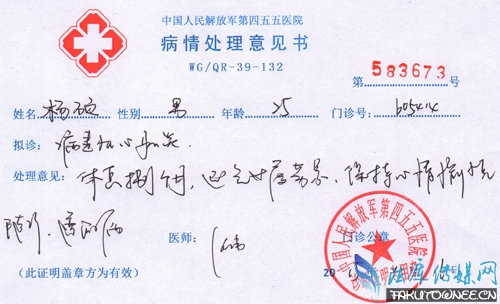 中国人民解放军第四五五医院
病情处理意见书
WG/QR-39-132
第583673号
姓名 杨硕 性别 男 年龄 25 门诊号 605414
拟诊: 病毒性心肌炎.
处理意见: 休息捌个月, 避免 劳累, 保持心情愉悦
随诊.
医师: 门诊公章
(此证明盖章方为有效) 20
中国人民解放军第四五五医院
法库传媒网
TAKUTOWNEE.CN